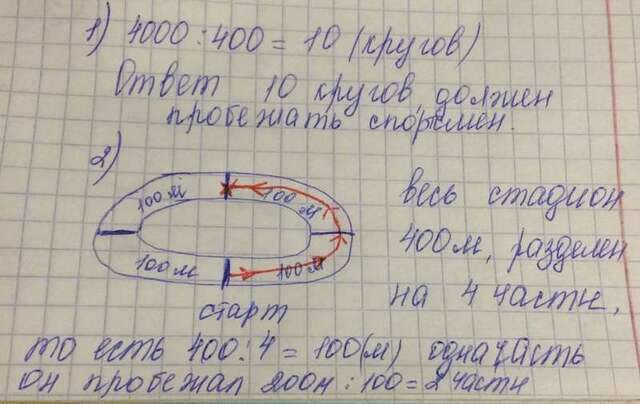 1) 4000 : 400 = 10 (кругов)
Ответ 10 кругов должен
пробежать спортсмен.
2)
100 м 100 м
100 м 100 м
старт
весь стадион
400м, разделен
на 4 части,
то есть 400 : 4 = 100(м) одна часть
он пробежал 200м : 100 = 2 части